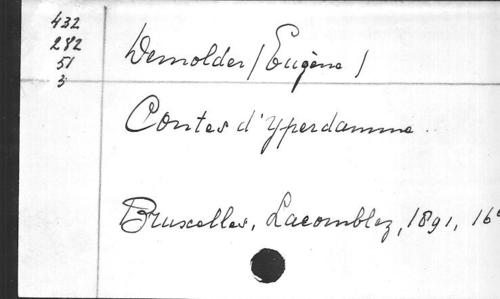 432
282
51
3
Demolder (Eugène)
Contes d'Yperdamme.
Bruxelles, Lacomblez, 1891, 16°